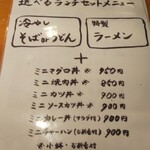 選べるランチセットメニュー
冷やし
そばorうどん
特製
ラーメン
+
ミニマグロ丼 950円
ミニ焼肉丼 950円
ミニカツ丼 900円
ミニソースカツ丼 900円
ミニカレー丼(サラダ付) 900円
ミニチャーハン 900円